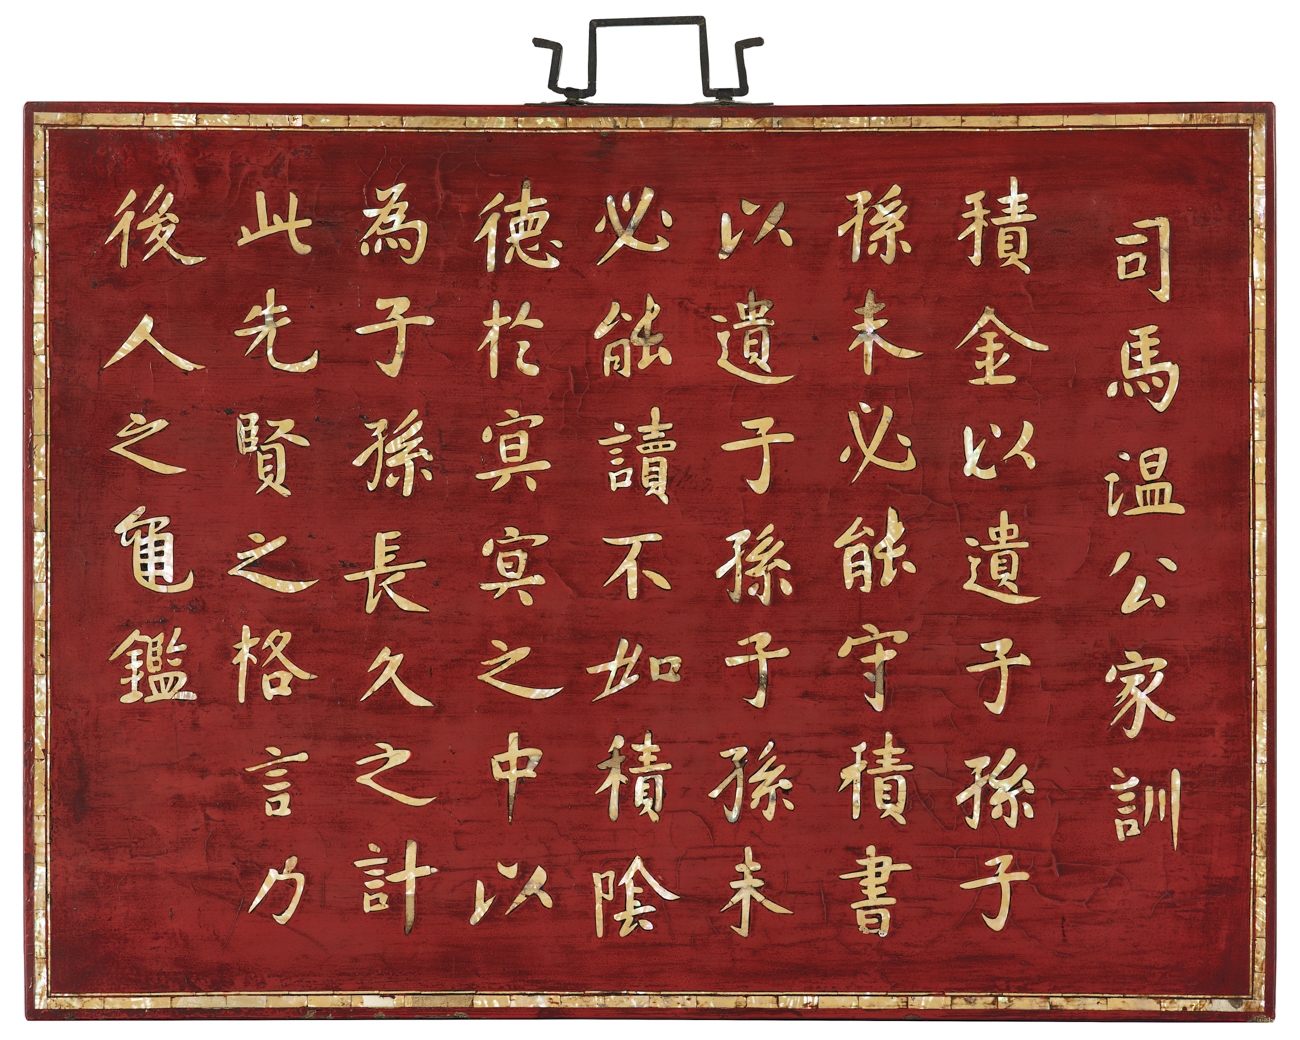 司馬溫公家訓
積金以遺子孫子
孫未必能守積書
以遺子孫子孫未
必能讀不如積陰
德於冥冥之中以
為子孫長久之計
此先賢之格言乃
後人之龜鑑